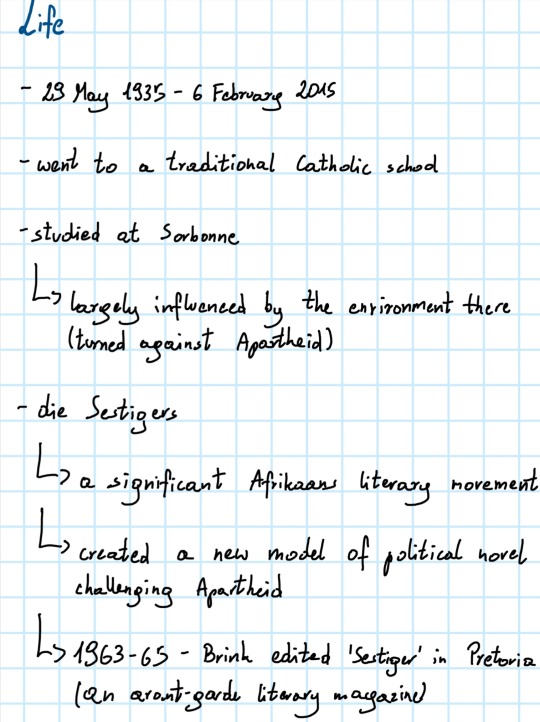 Life
- 29 May 1935 - 6 February 2015
- went to a traditional Catholic school
- studied at Sorbonne
↳ largely influenced by the environment there
(turned against Apartheid)
- die Sestigers
↳ a significant Afrikaans literary movement
↳ created a new model of political novel
challenging Apartheid
↳ 1963-65 - Brink edited 'Sestiger' in Pretoria
(an avant-garde literary magazine)